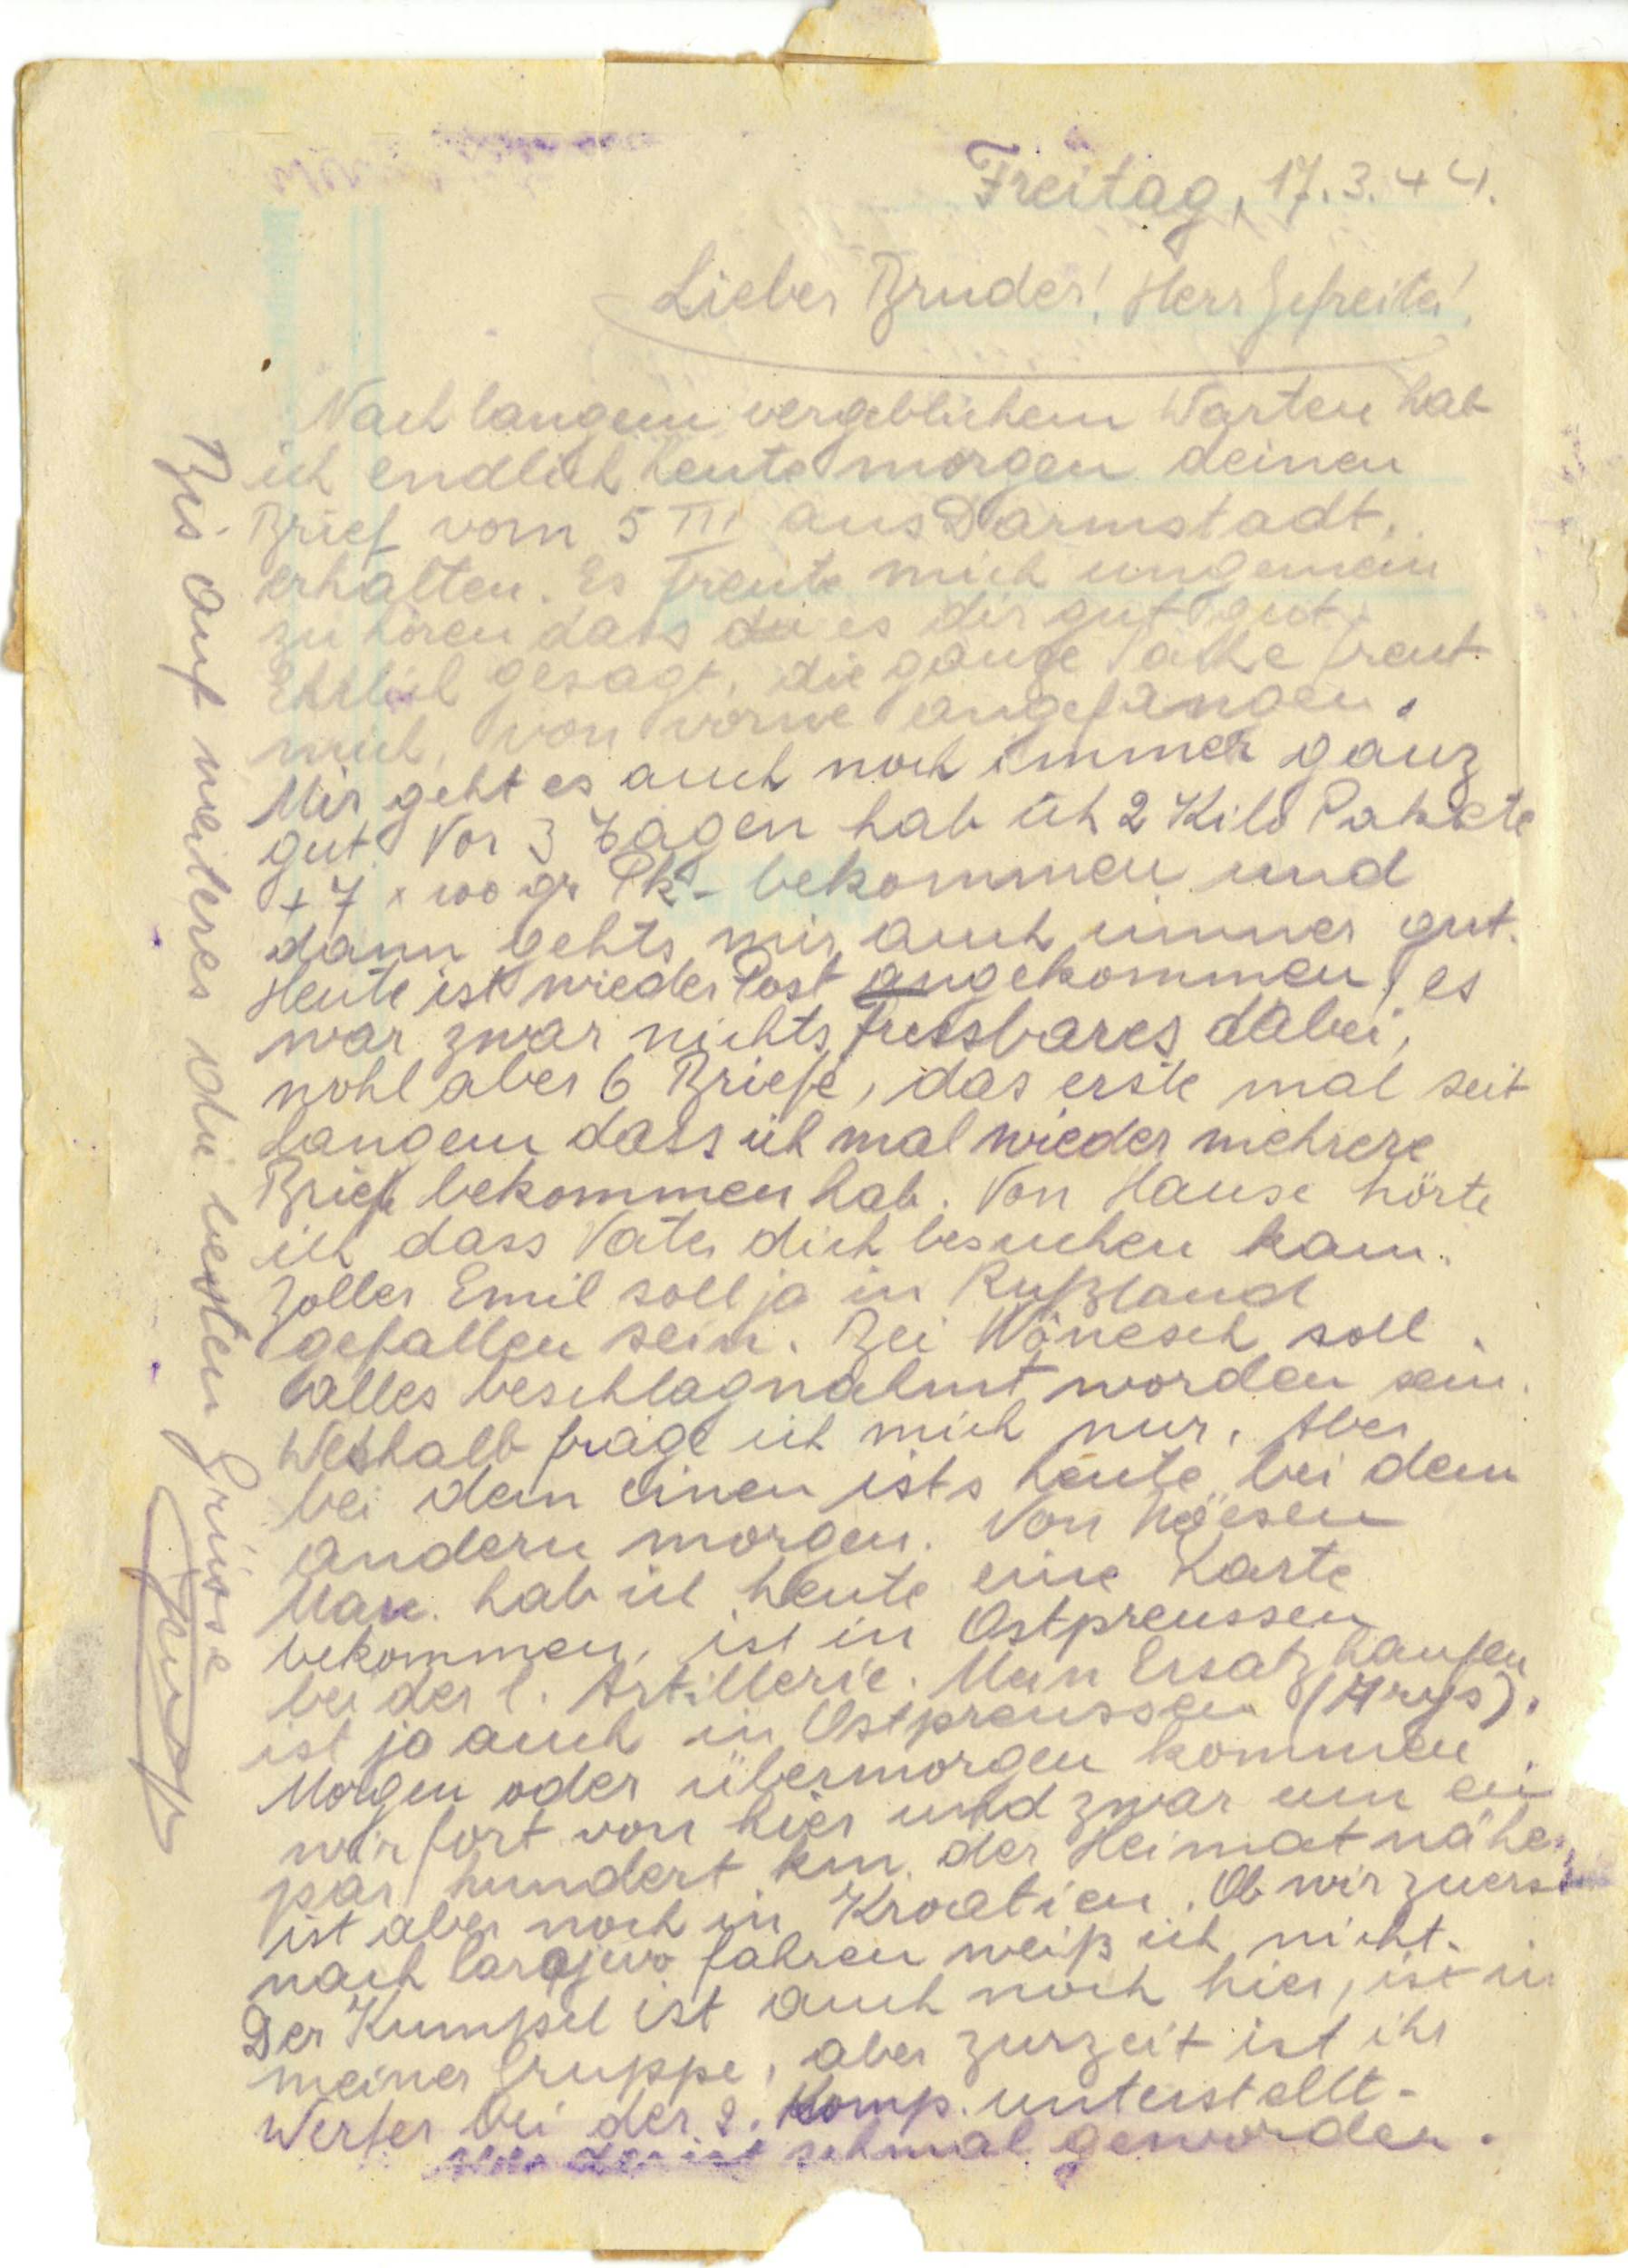 Freitag, 17.3.44.
Lieber Bruder! Herr Gefreiter!
Nach langem vergeblichem Warten hab
ich endlich heute morgen deinen
Brief vom 5 III aus Darmstadt.
erhalten. Es freute mich ungemein
zu hören dass du es dir gut gut.
Ehrlich gesagt, die ganze Sache freut
mich, von vorne angefangen.
Mir geht es auch noch immer ganz
gut. Vor 3 Tagen hab ich 2 Kilo Pakete
+ 7 x 100 gr Pk- bekommen und
dann gehts mir auch immer gut.
Heute ist wieder Post angekommen, es
war zwar nichts Fressbares dabei,
wohl aber 6 Briefe, das erste mal seit
langem dass ich mal wieder mehrere
Briefe bekommen hab. Von Hause hörte
ich dass Vater dich besuchen kam.
Zoller Emil soll ja in Rußland
gefallen sein. Bei Wönesch soll
alles beschlagnahmt worden sein.
Weshalb frage ich mich nur. Aber
bei dem einen ists heute bei dem
andern morgen. Von
hab ich heute eine Karte
bekommen, ist in Ostpreussen
bei der l. Artillerie. Mein Ersatzhaufen
ist ja auch in Ostpreussen (Arys).
Morgen oder übermorgen kommen
wir fort von hier und zwar um ein
par hundert km. der Heimat näher,
ist aber noch in Kroatien. Ob wir zuerst
nach Sarajevo fahren weiß ich nicht.
Der Kumpel ist auch noch hier, ist in
meiner Gruppe, aber zurzeit ist ihr
Werfer bei der 2. Komp. unterstellt.
schmal geworden.
Bis auf weiteres die besten Grüsse